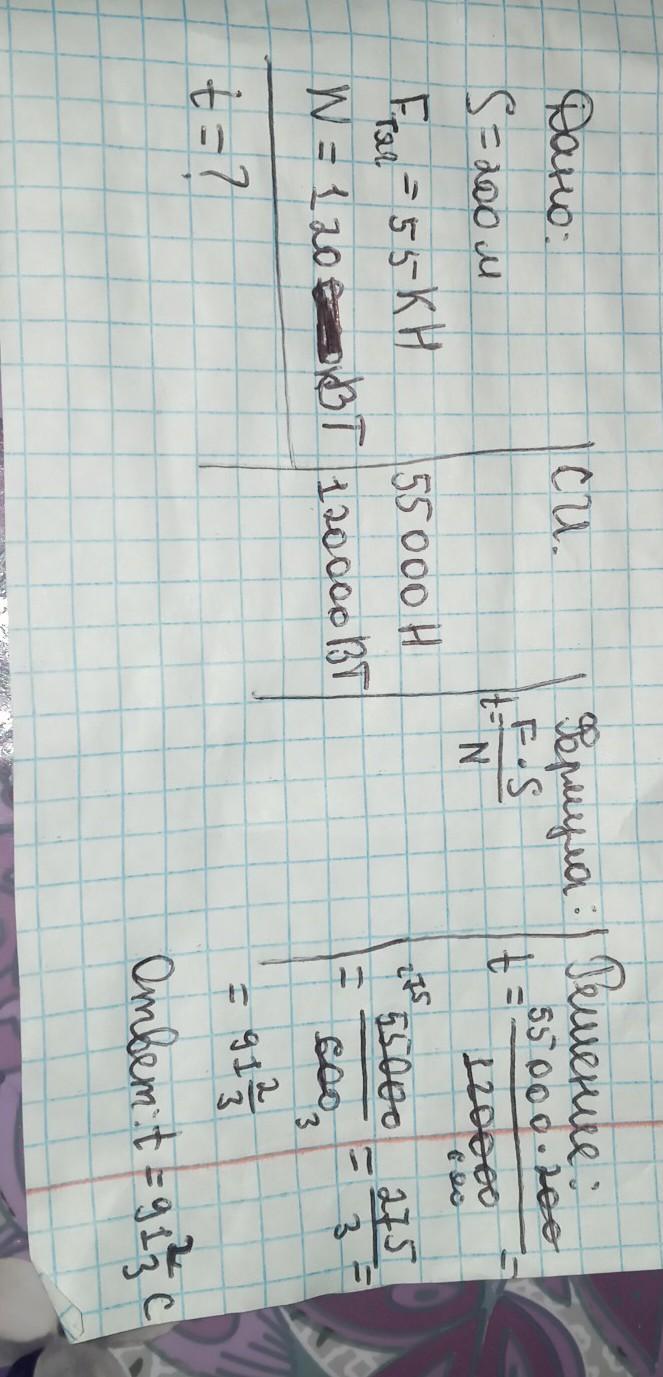 Дано:
S = 200 м
Fтяг = 55 КН
N = 120 кВТ
t = ?
СИ.
55 000 Н
120000 ВТ
Формула:
t = F · S / N
Решение:
t = 55 000 · 200 / 120000 =
600
= 55000 / 600 = 275 / 3 =
275
3
= 91 2/3
Ответ: t = 91 2/3 с